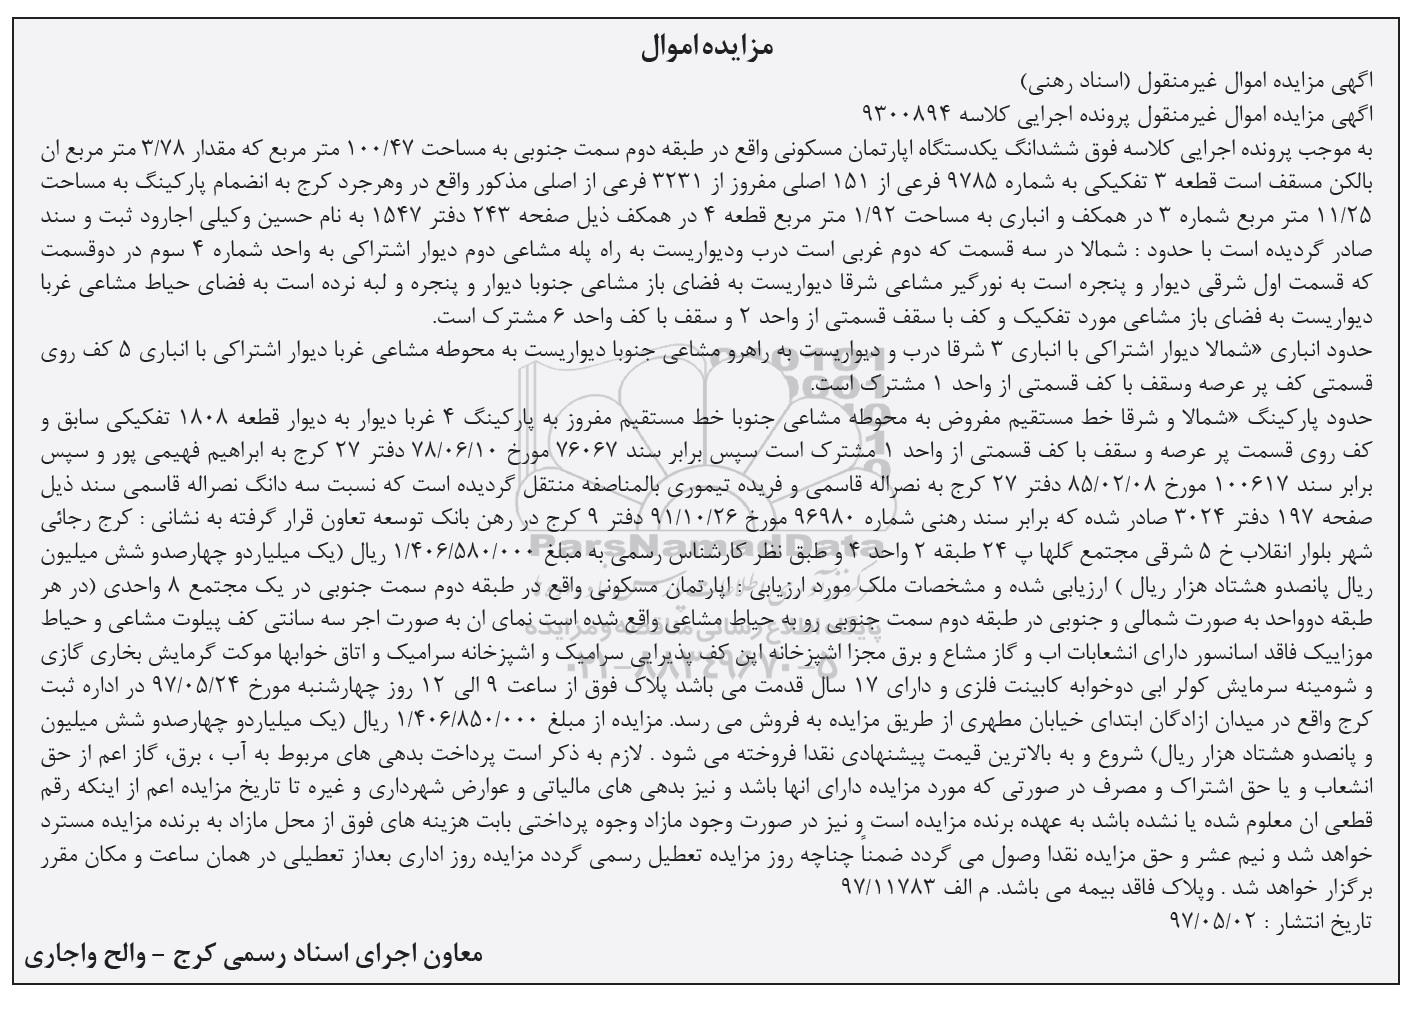 مزایده اموال
اگهی مزایده اموال غیرمنقول (اسناد رهنی)
اگهی مزایده اموال غیرمنقول پرونده اجرایی کلاسه ۹۳۰۰۸۹۴
به موجب پرونده اجرایی کلاسه فوق ششدانگ یکدستگاه اپارتمان مسکونی واقع در طبقه دوم سمت جنوبی به مساحت ۱۰۰/۴۷ متر مربع که مقدار ۳/۷۸ متر مربع ان
بالکن مسقف است قطعه ۳ تفکیکی به شماره ۹۷۸۵ فرعی از ۱۵۱ اصلی مفروز از ۳۲۳۱ فرعی از اصلی مذکور واقع در وهرجرد کرج به انضمام پارکینگ به مساحت
۱۱/۲۵ متر مربع شماره ۳ در همکف و انباری به مساحت ۱/۹۲ متر مربع قطعه ۴ در همکف ذیل صفحه ۲۴۳ دفتر ۱۵۴۷ به نام حسین وکیلی اجارود ثبت و سند
صادر گردیده است با حدود : شمالا در سه قسمت که دوم غربی است درب ودیواریست به راه پله مشاعی دوم دیوار اشتراکی به واحد شماره ۴ سوم در دوقسمت
که قسمت اول شرقی دیوار و پنجره است به نورگیر مشاعی شرقا دیواریست به فضای باز مشاعی جنوبا دیوار و پنجره و لبه نرده است به فضای حیاط مشاعی غربا
دیواریست به فضای باز مشاعی مورد تفکیک و کف با سقف قسمتی از واحد ۲ و سقف با کف واحد ۶ مشترک است.
حدود انباری «شمالا دیوار اشتراکی با انباری ۳ شرقا درب و دیواریست به راهرو مشاعی جنوبا دیواریست به محوطه مشاعی غربا دیوار اشتراکی با انباری ۵ کف روی
قسمتی کف پر عرصه وسقف با کف قسمتی از واحد ۱ مشترک است.
حدود پارکینگ «شمالا و شرقا خط مستقیم مفروض به محوطه مشاعی جنوبا خط مستقیم مفروز به پارکینگ ۴ غربا دیوار به دیوار قطعه ۱۸۰۸ تفکیکی سابق و
کف روی قسمت پر عرصه و سقف با کف قسمتی از واحد ۱ مشترک است سپس برابر سند ۷۶۰۶۷ مورخ ۷۸/۰۶/۱۰ دفتر ۲۷ کرج به ابراهیم فهیمی پور و سپس
برابر سند ۱۰۰۶۱۷ مورخ ۸۵/۰۲/۰۸ دفتر ۲۷ کرج به نصراله قاسمی و فریده تیموری بالمناصفه منتقل گردیده است که نسبت سه دانگ نصراله قاسمی سند ذیل
صفحه ۱۹۷ دفتر ۳۰۲۴ صادر شده که برابر سند رهنی شماره ۹۶۹۸۰ مورخ ۹۱/۱۰/۲۶ دفتر ۹ کرج در رهن بانک توسعه تعاون قرار گرفته به نشانی : کرج رجائی
شهر بلوار انقلاب خ ۵ شرقی مجتمع گلها پ ۲۴ طبقه ۲ واحد ۴ و طبق نظر کارشناس رسمی به مبلغ ۱/۴۰۶/۵۸۰/۰۰۰ ریال (یک میلیاردو چهارصدو شش میلیون
ریال پانصدو هشتاد هزار ریال ) ارزیابی شده و مشخصات ملک مورد ارزیابی : اپارتمان مسکونی واقع در طبقه دوم سمت جنوبی در یک مجتمع ۸ واحدی (در هر
طبقه دوواحد به صورت شمالی و جنوبی در طبقه دوم سمت جنوبی رو به حیاط مشاعی واقع شده است نمای ان به صورت اجر سه سانتی کف پیلوت مشاعی و حیاط
موزاییک فاقد اسانسور دارای انشعابات اب و گاز مشاع و برق مجزا اشپزخانه اپن کف پذیرایی سرامیک و اشپزخانه سرامیک و اتاق خوابها موکت گرمایش بخاری گازی
و شومینه سرمایش کولر ابی دوخوابه کابینت فلزی و دارای ۱۷ سال قدمت می باشد پلاک فوق از ساعت ۹ الی ۱۲ روز چهارشنبه مورخ ۹۷/۰۵/۲۴ در اداره ثبت
کرج واقع در میدان ازادگان ابتدای خیابان مطهری از طریق مزایده به فروش می رسد. مزایده از مبلغ ۱/۴۰۶/۸۵۰/۰۰۰ ریال (یک میلیاردو چهارصدو شش میلیون
و پانصدو هشتاد هزار ریال) شروع و به بالاترین قیمت پیشنهادی نقدا فروخته می شود . لازم به ذکر است پرداخت بدهی های مربوط به آب ، برق، گاز اعم از حق
انشعاب و یا حق اشتراک و مصرف در صورتی که مورد مزایده دارای انها باشد و نیز بدهی های مالیاتی و عوارض شهرداری و غیره تا تاریخ مزایده اعم از اینکه رقم
قطعی ان معلوم شده یا نشده باشد به عهده برنده مزایده است و نیز در صورت وجود مازاد وجوه پرداختی بابت هزینه های فوق از محل مازاد به برنده مزایده مسترد
خواهد شد و نیم عشر و حق مزایده نقدا وصول می گردد ضمناً چناچه روز مزایده تعطیل رسمی گردد مزایده روز اداری بعداز تعطیلی در همان ساعت و مکان مقرر
برگزار خواهد شد . وپلاک فاقد بیمه می باشد. م الف ۹۷/۱۱۷۸۳
تاریخ انتشار : ۹۷/۰۵/۰۲
معاون اجرای اسناد رسمی کرج – والح واجاری
ParsNamadData
پایگاه اطلاع رسانی مناقصه و مزایده
۰۲۱-۸۸۳۴۹۶۷۰-۵